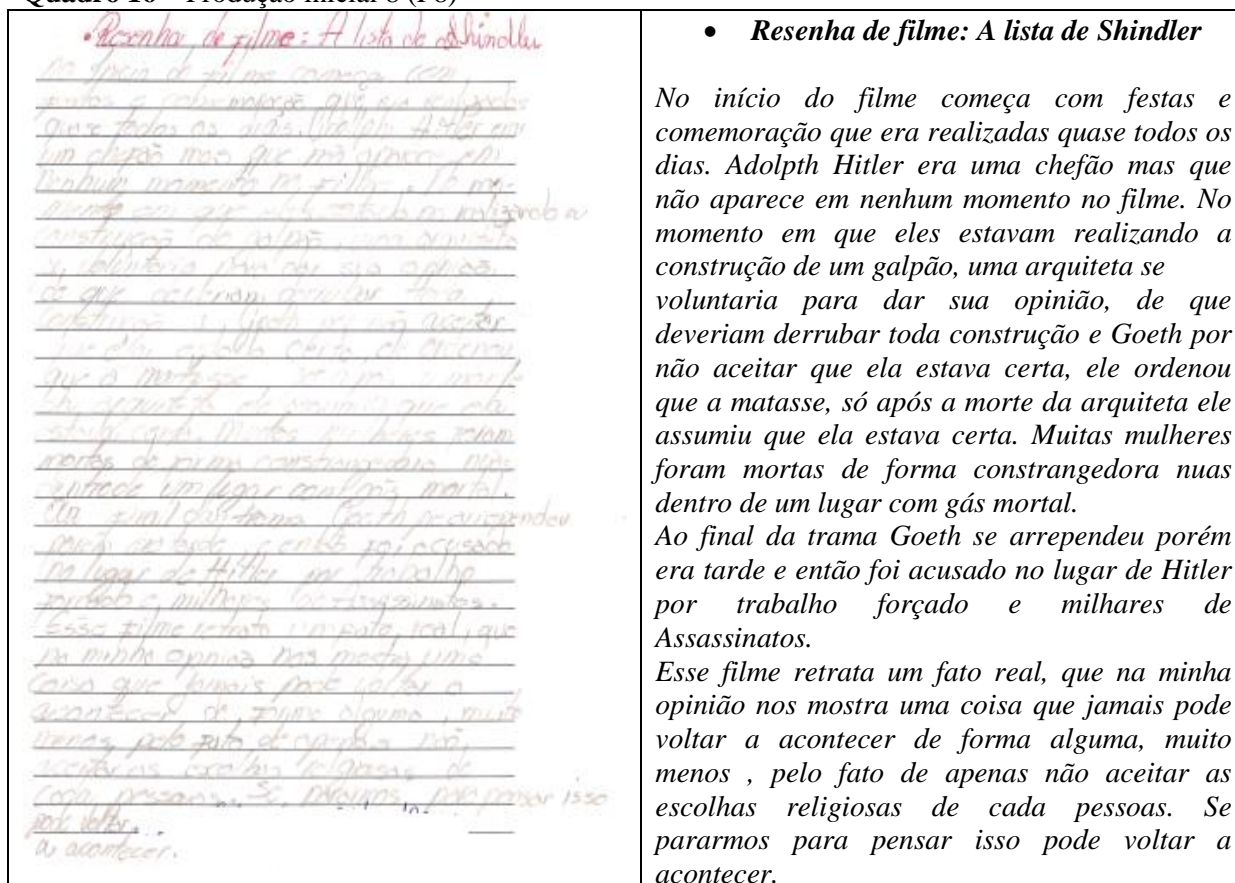 Produção inicial
• Resenha de filme: A lista de Shindler
No início do filme começa com
festas e comemoração que
quase todos os dias. Hitler era
um chefão mas que não aparece em
nenhum momento no filme. No mo-
mento em que eles realizando a
construção de galpão, uma arquiteta
se voluntaria para dar sua opinião,
de que deveriam derrubar toda
construção e Goeth por não aceitar
que ela estava certa, ele ordenou
que a matasse, a morte
da arquiteta ele que ela
estava certa. Muitas mulheres foram
mortas de forma constrangedora nuas
dentro de um lugar com gás mortal.
final da trama Goeth se arrependeu
porém era tarde e então foi acusado
no lugar de Hitler por trabalho
forçado e milhares de assassinatos.
Esse filme retrata um fato real, que
na minha opinião nos mostra uma
coisa que jamais pode voltar a
acontecer de forma alguma, muito
menos, pelo fato de apenas não
aceitar as escolhas religiosas de
cada pessoas. Se pararmos para pensar isso
pode voltar
a acontecer.
• Resenha de filme: A lista de Shindler
No início do filme começa com festas e
comemoração que era realizadas quase todos os
dias. Adolpth Hitler era uma chefão mas que
não aparece em nenhum momento no filme. No
momento em que eles estavam realizando a
construção de um galpão, uma arquiteta se
voluntaria para dar sua opinião, de que
deveriam derrubar toda construção e Goeth por
não aceitar que ela estava certa, ele ordenou
que a matasse, só após a morte da arquiteta ele
assumiu que ela estava certa. Muitas mulheres
foram mortas de forma constrangedora nuas
dentro de um lugar com gás mortal.
Ao final da trama Goeth se arrependeu porém
era tarde e então foi acusado no lugar de Hitler
por trabalho forçado e milhares de
Assassinatos.
Esse filme retrata um fato real, que na minha
opinião nos mostra uma coisa que jamais pode
voltar a acontecer de forma alguma, muito
menos , pelo fato de apenas não aceitar as
escolhas religiosas de cada pessoas. Se
pararmos para pensar isso pode voltar a
acontecer.